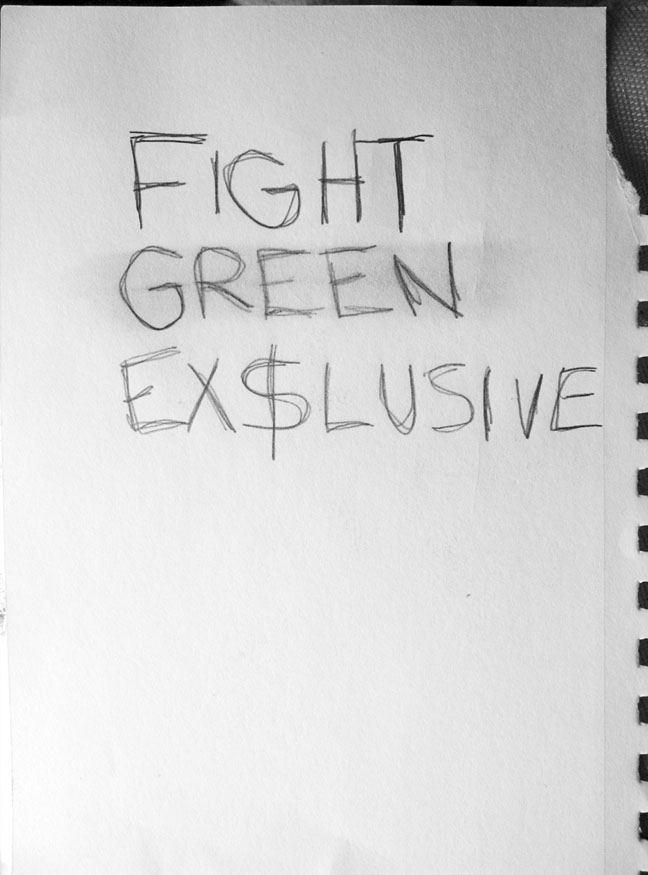 FIGHT
GREEN
EX$LUSIVE